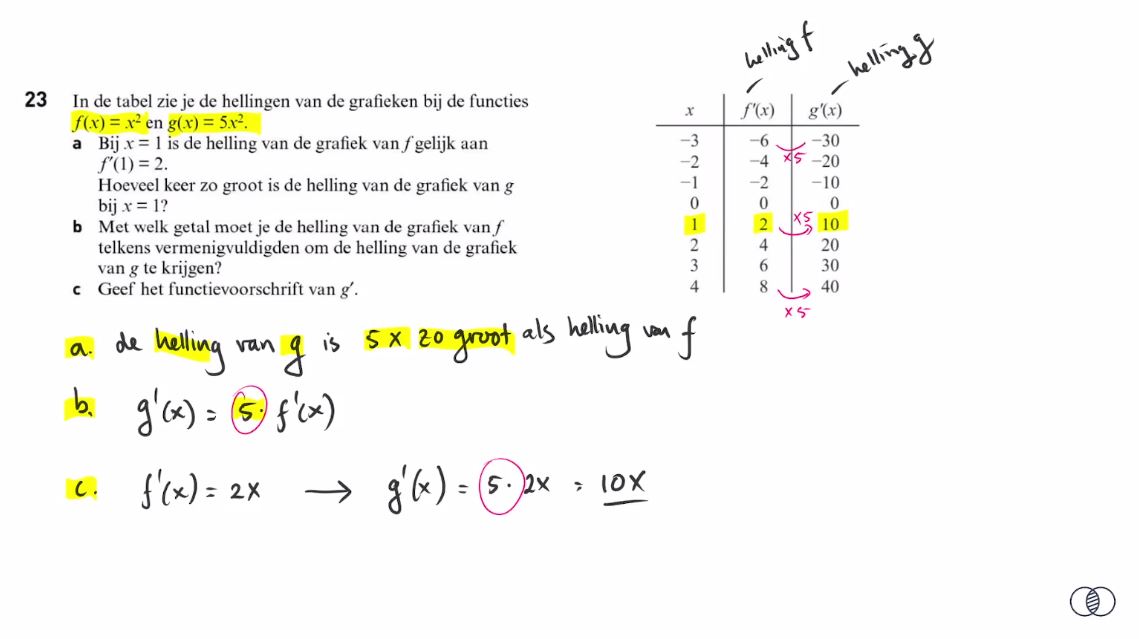 helling f
helling g
23 In de tabel zie je de hellingen van de grafieken bij de functies
f(x) = x² en g(x) = 5x².
a Bij x = 1 is de helling van de grafiek van f gelijk aan
f'(1) = 2.
Hoeveel keer zo groot is de helling van de grafiek van g
bij x = 1?
b Met welk getal moet je de helling van de grafiek van f
telkens vermenigvuldigden om de helling van de grafiek
van g te krijgen?
c Geef het functievoorschrift van g'.
x f'(x) g'(x)
−3 −6 −30
×5
−2 −4 −20
−1 −2 −10
0 0 0
×5
1 2 10
2 4 20
3 6 30
4 8 40
×5
a. de helling van g is 5 x zo groot als helling van f
b. g'(x) = 5· f'(x)
c. f'(x) = 2x → g'(x) = 5· 2x = 10x